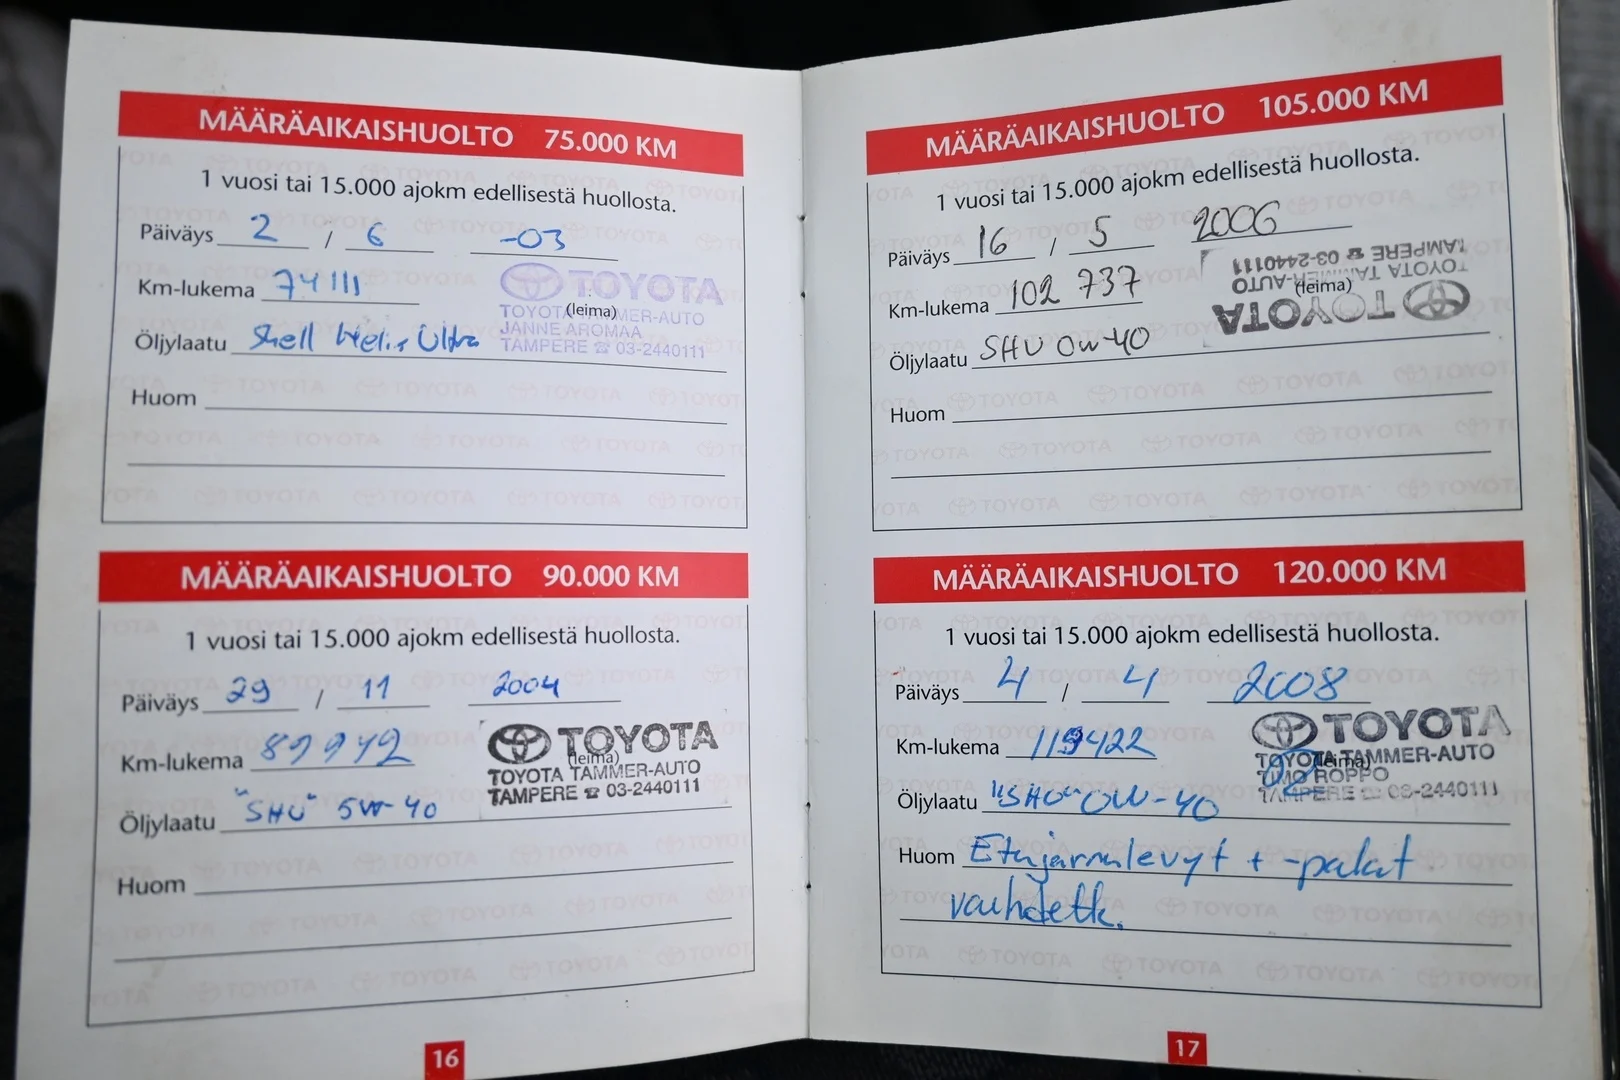 MÄÄRÄAIKAISHUOLTO 75.000 KM
1 vuosi tai 15.000 ajokm edellisestä huollosta.
Päiväys 2 / 6 -03
Km-lukema 74111
TOYOTA
(leima)
TOYOTA TAMMER-AUTO
JANNE AROMAA
TAMPERE ☎ 03-2440111
Öljylaatu Shell Helix Ultra
Huom
MÄÄRÄAIKAISHUOLTO 90.000 KM
1 vuosi tai 15.000 ajokm edellisestä huollosta.
Päiväys 29 / 11 2004
Km-lukema 89942
TOYOTA
(leima)
TOYOTA TAMMER-AUTO
TAMPERE ☎ 03-2440111
Öljylaatu "SHU" 5W-40
Huom
16
MÄÄRÄAIKAISHUOLTO 105.000 KM
1 vuosi tai 15.000 ajokm edellisestä huollosta.
Päiväys 16 / 5 2006
Km-lukema 102 737
TOYOTA
(leima)
TOYOTA TAMMER-AUTO
TAMPERE ☎ 03-2440111
Öljylaatu SHU 0W-40
Huom
MÄÄRÄAIKAISHUOLTO 120.000 KM
1 vuosi tai 15.000 ajokm edellisestä huollosta.
Päiväys 4 / 4 2008
Km-lukema 119422
TOYOTA
(leima)
TOYOTA TAMMER-AUTO
TIMO ROPPO
TAMPERE ☎ 03-2440111
Öljylaatu "SHU" 0W-40
Huom Etujarrulevyt + -palat
vaihdettu.
17